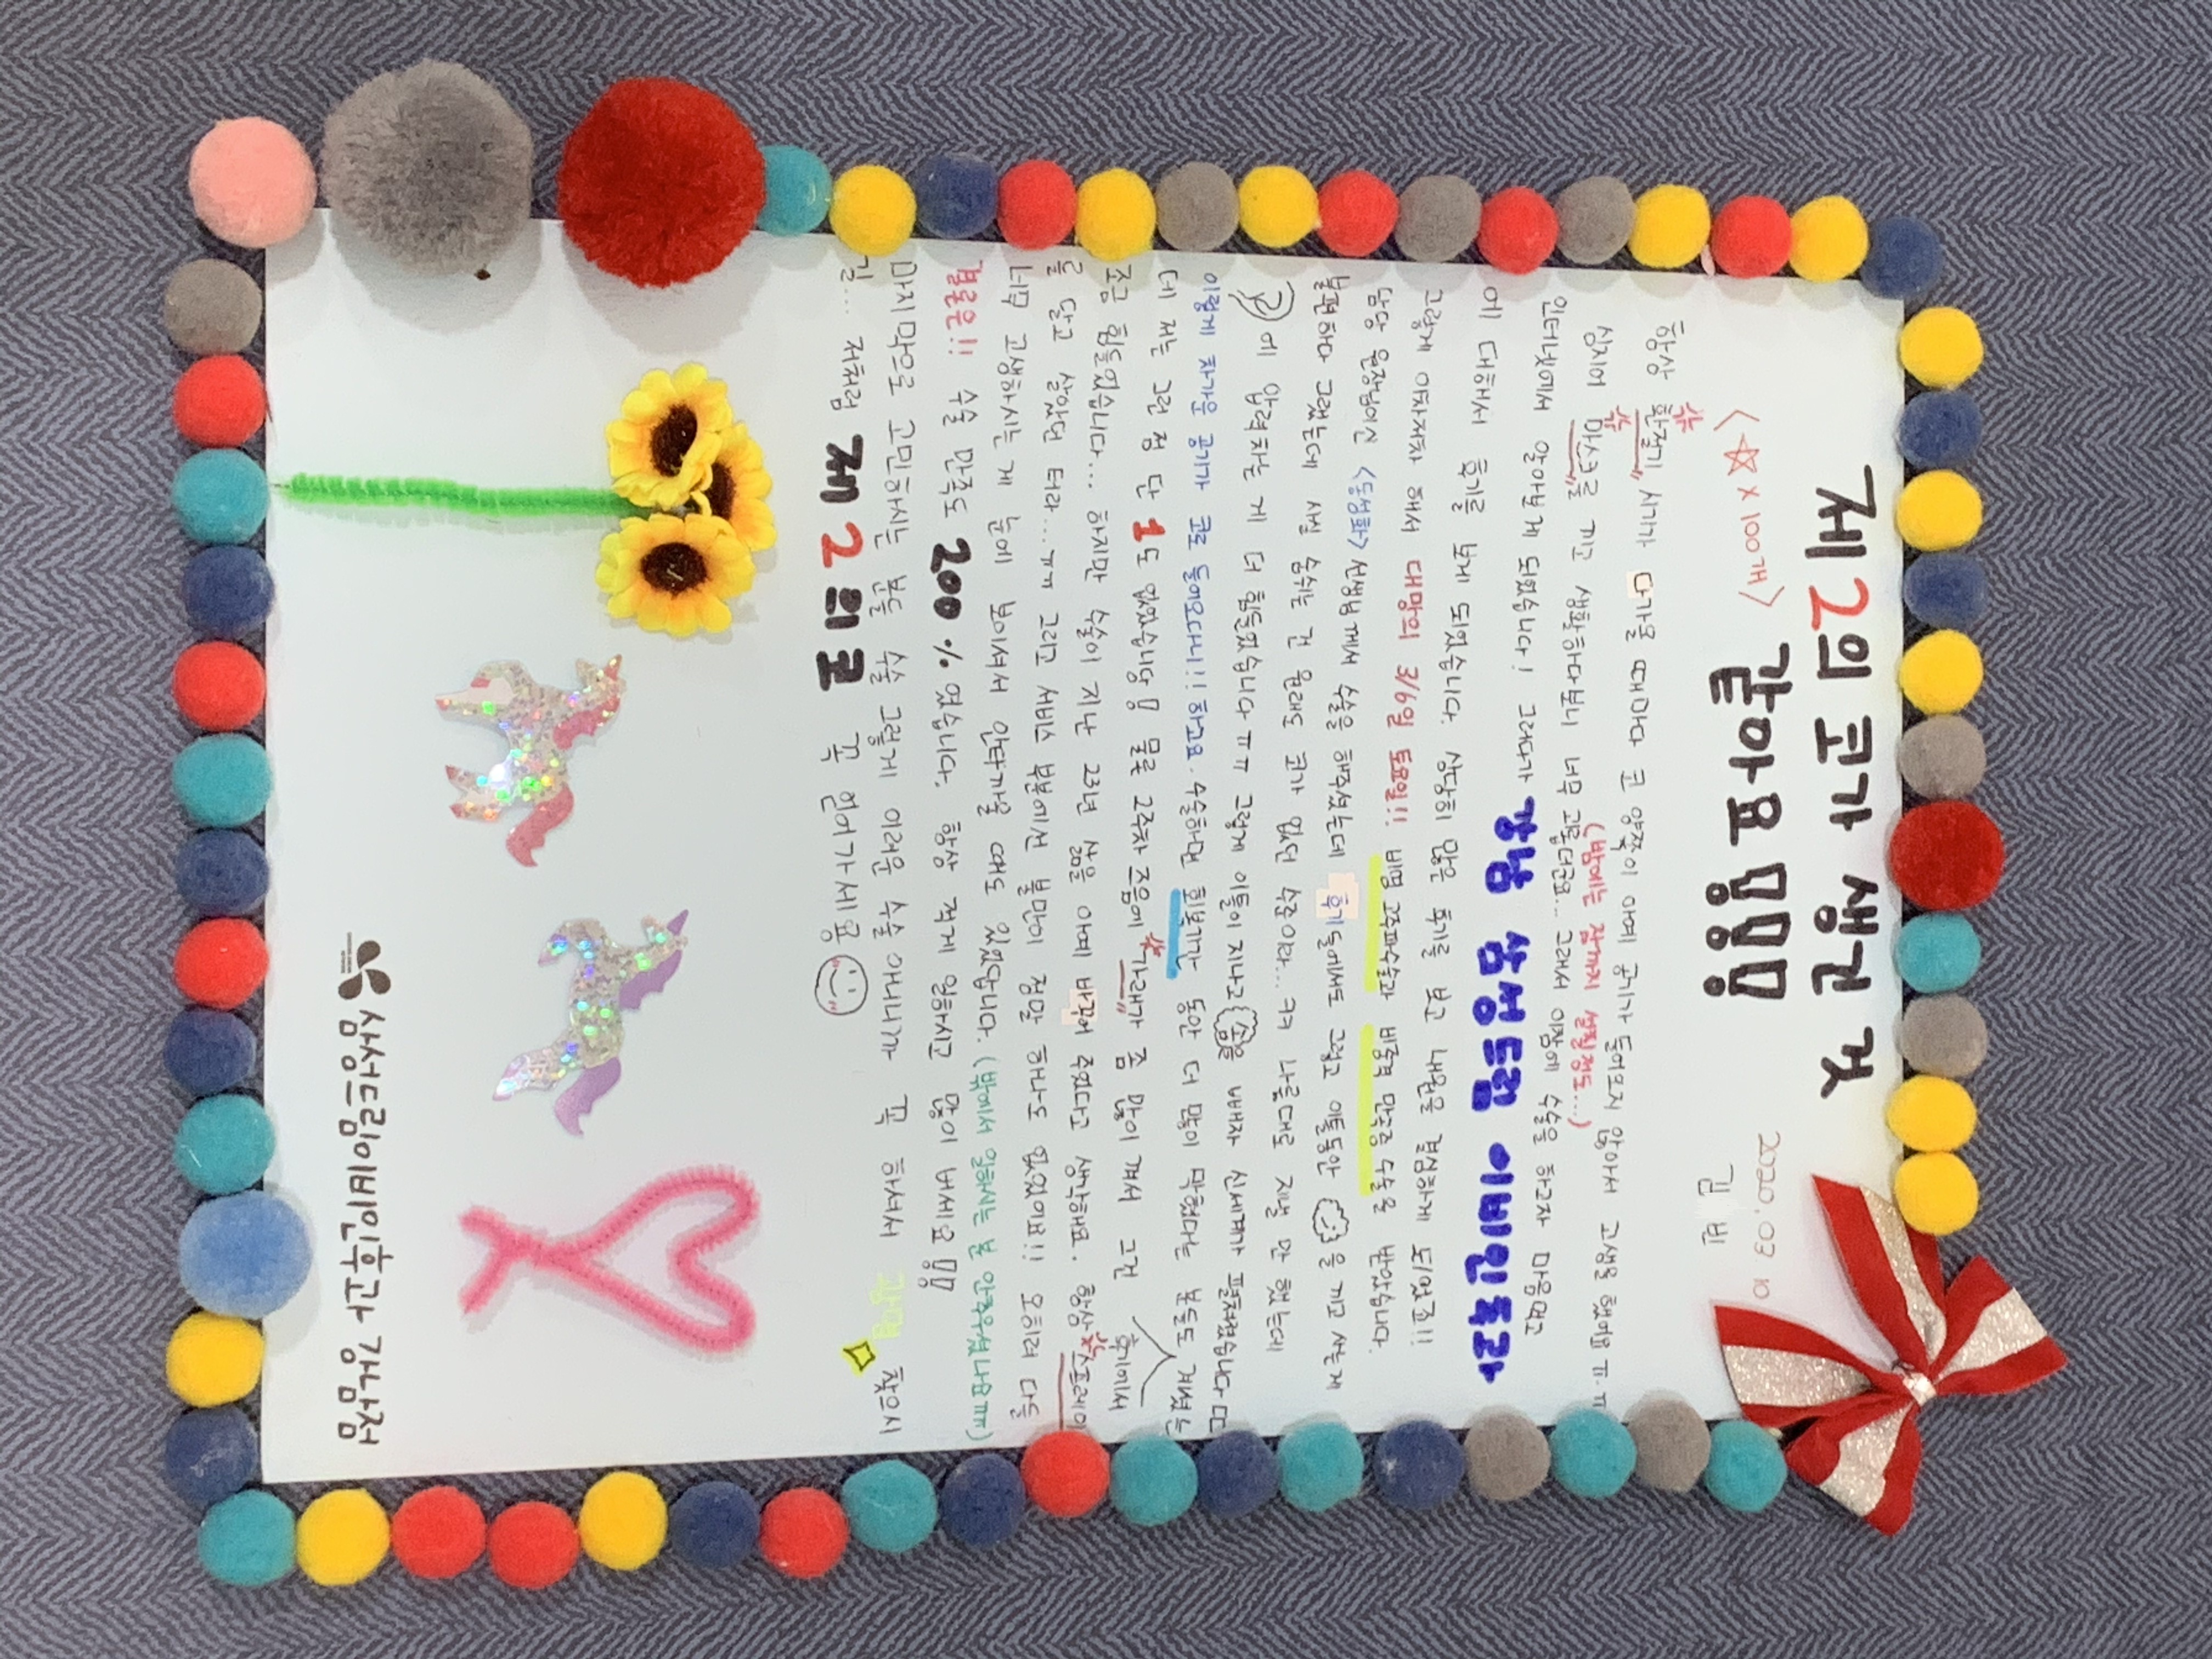 제2의 코가 생긴 것
같아요!!!
2020.03.10
김 빈
<☆×100개>
항상 환절기 시기가 다가올 때마다 코 양쪽이 아예 공기가 들어오지 않아서 고생을 했어요 ㅠ.ㅠ
심지어 마스크를 끼고 생활하다보니 너무 고통더군요... 그래서 이참에 수술을 하고자 마음먹고
(밤에는 잠까지 설칠정도...)
인터넷에서 알아보게 되었습니다! 그러다가 강남 삼성드림 이비인후과
에 대해서 후기를 보게 되었습니다. 상당히 많은 후기를 보고 내원을 결심하게 되었죠!!
그렇게 이차저차 해서 대망의 3/6일 토요일!! 비염 고주파수술과 비중격 만곡증 수술을 받았습니다.
담당 원장님이신 <동성화> 선생님께서 수술을 해주셨는데 후기들에서도 그렇고 이틀동안 솜을 끼고 사는게
불편하다 그랬는데 사실 숨쉬는 건 원래도 코가 없던 수준이라.. ㅋㅋ 나름대로 지낼 만 했는데
코에 압력차는 게 더 힘들었습니다 ㅠㅠ 그렇게 이틀이 지나고 솜을 빼자 신세계가 펼쳐졌습니다ㅁㅁ
이렇게 차가운 공기가 코로 들어오다니!!! 하고요. 수술하면 회복기간 동안 더 많이 막혔다는 분들도 계셨는
후기에서
데 저는 그런 점 단 1도 없었습니당! 물론 2주차 즈음에 가래가 좀 많이 껴서 그건
조금 힘들었습니다... 하지만 수술이 지난 23년 삶을 아예 바꾸어 주었다고 생각해요. 항상 스프레이
를 달고 살았던 터라...ㅠㅠ 그리고 서비스 부분에선 불만이 정말 하나도 없었어요!! 오히려 다들
너무 고생하시는 게 눈에 보이셔서 안타까울 때도 있었답니다. (밖에서 일하시는 분 안추우셨나요ㅠㅠ)
결론은!! 수술 만족도 200% 였습니다. 항상 적게 일하시고 많이 버세요!!
마지막으로 고민하시는 분들 수술 그렇게 어려운 수술 아니니까 꼭 하셔서 찾으시
길... 저처럼 제2의코 꼭 얻어가세용
삼성드림이비인후과 강남점